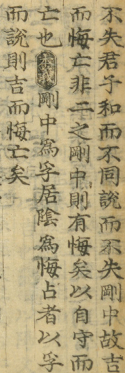 不失君子和而不同說而不失剛中故吉
而悔亡非二之剛中則有悔矣以自守而
亡也本義剛中爲孚居陰爲悔占者以孚
而說則吉而悔亡矣